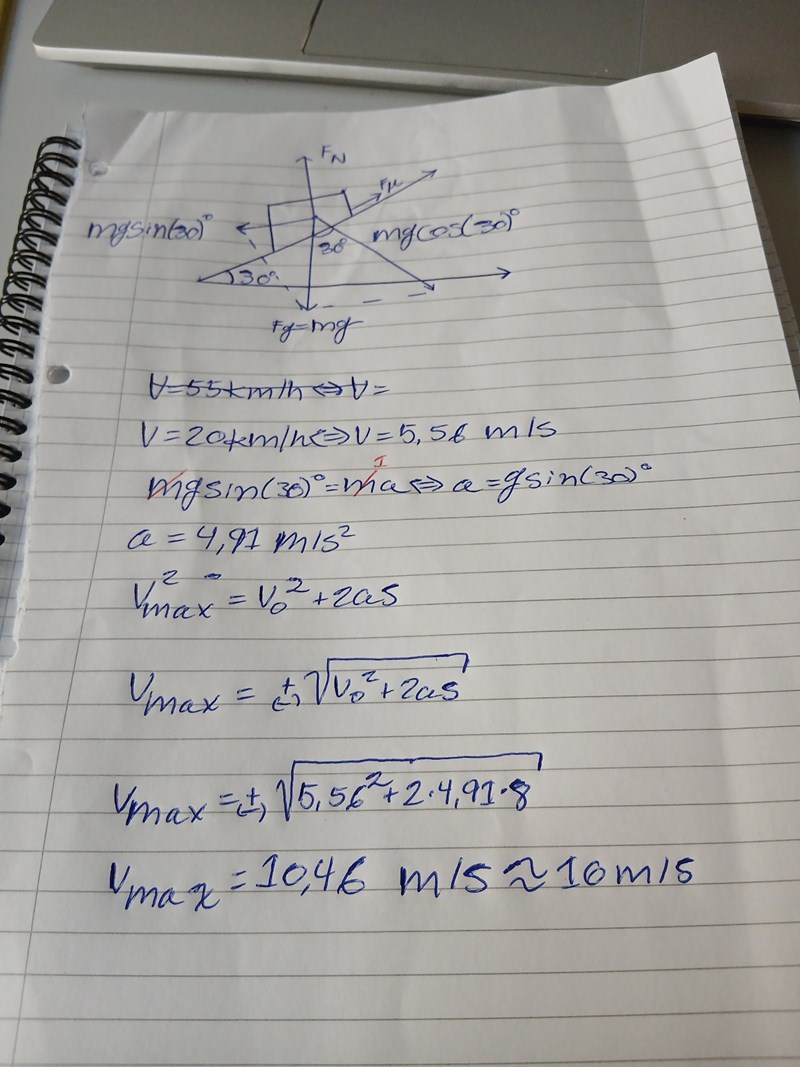 F_N
Fμ
mgsin(30)°
30°
mgcos(30)°
30°
Fg=mg
V=55km/h⇔V=
V=20km/h⇔V=5,56 m/s
mgsin(30)°=ma⇔a=gsin(30)°
a=4,91 m/s²
V²max=V₀²+2as
Vmax=±(-)√V₀²+2as
Vmax=±(-)√5,56²+2·4,91·8
Vmax=10,46 m/s≈10m/s